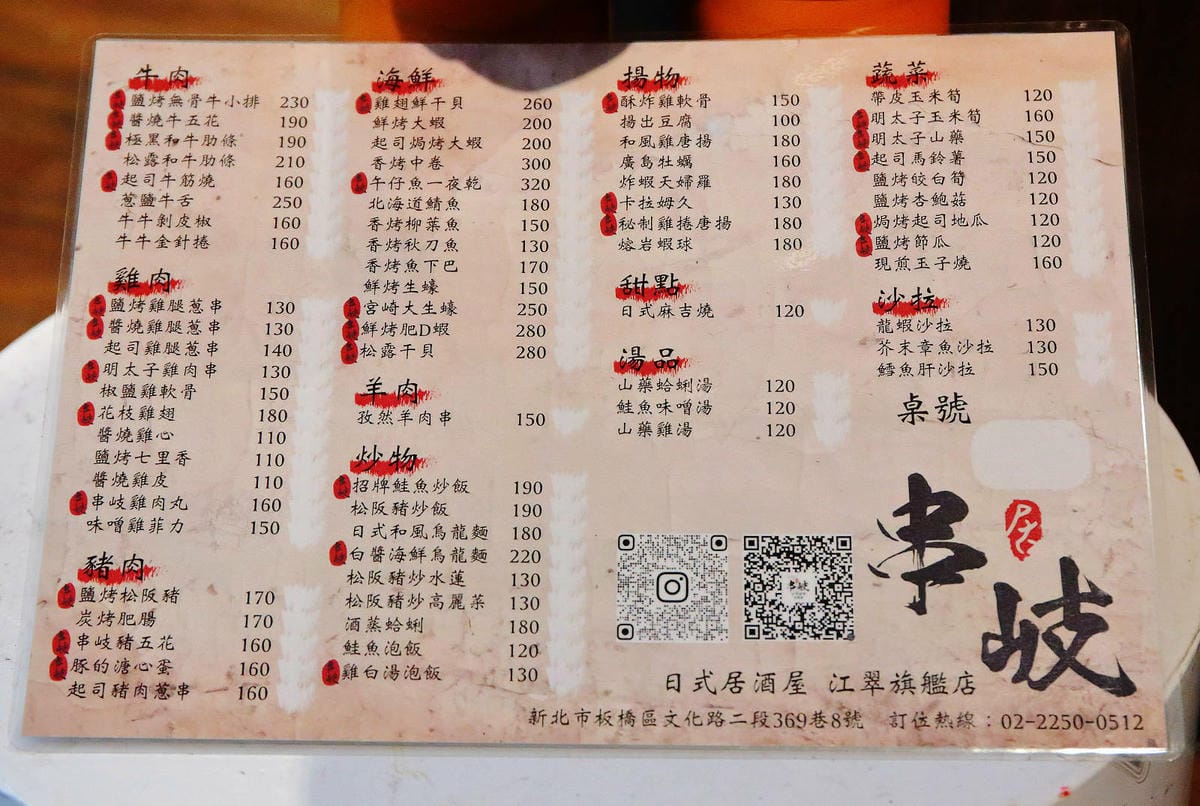 牛肉
鹽烤無骨牛小排 230
醬燒牛五花 190
極黑和牛肋條 190
松露和牛肋條 210
起司牛筋燒 160
蔥鹽牛舌 250
牛牛剝皮椒 160
牛牛金針捲 160
雞肉
鹽烤雞腿蔥串 130
醬燒雞腿蔥串 130
起司雞腿蔥串 140
明太子雞肉串 130
椒鹽雞軟骨 150
花枝雞翅 180
醬燒雞心 110
鹽烤七里香 110
醬燒雞皮 110
串岐雞肉丸 160
味噌雞菲力 150
豬肉
鹽烤松阪豬 170
炭烤肥腸 170
串岐豬五花 160
豚的溏心蛋 160
起司豬肉蔥串 160
海鮮
雞翅鮮干貝 260
鮮烤大蝦 200
起司焗烤大蝦 200
香烤中卷 300
午仔魚一夜乾 320
北海道鯖魚 180
香烤柳葉魚 150
香烤秋刀魚 130
香烤魚下巴 170
鮮烤生蠔 150
宮崎大生蠔 250
鮮烤肥D蝦 280
松露干貝 280
羊肉
孜然羊肉串 150
炒物
招牌鮭魚炒飯 190
松阪豬炒飯 190
日式和風烏龍麵 180
白醬海鮮烏龍麵 220
松阪豬炒水蓮 130
松阪豬炒高麗菜 130
酒蒸蛤蜊 180
鮭魚泡飯 120
雞白湯泡飯 130
揚物
酥炸雞軟骨 150
揚出豆腐 100
和風雞唐揚 180
廣島牡蠣 160
炸蝦天婦羅 180
卡拉姆久 130
秘制雞捲唐揚 180
熔岩蝦球 180
甜點
日式麻吉燒 120
湯品
山藥蛤蜊湯 120
鮭魚味噌湯 120
山藥雞湯 120
蔬菜
帶皮玉米筍 120
明太子玉米筍 160
明太子山藥 150
起司馬鈴薯 150
鹽烤皎白筍 120
鹽烤杏鮑菇 120
焗烤起司地瓜 120
鹽烤節瓜 120
現煎玉子燒 160
沙拉
龍蝦沙拉 130
芥末章魚沙拉 130
鱈魚肝沙拉 150
桌號
串岐
居
日式居酒屋 江翠旗艦店
新北市板橋區文化路二段369巷8號 訂位熱線：02-2250-0512